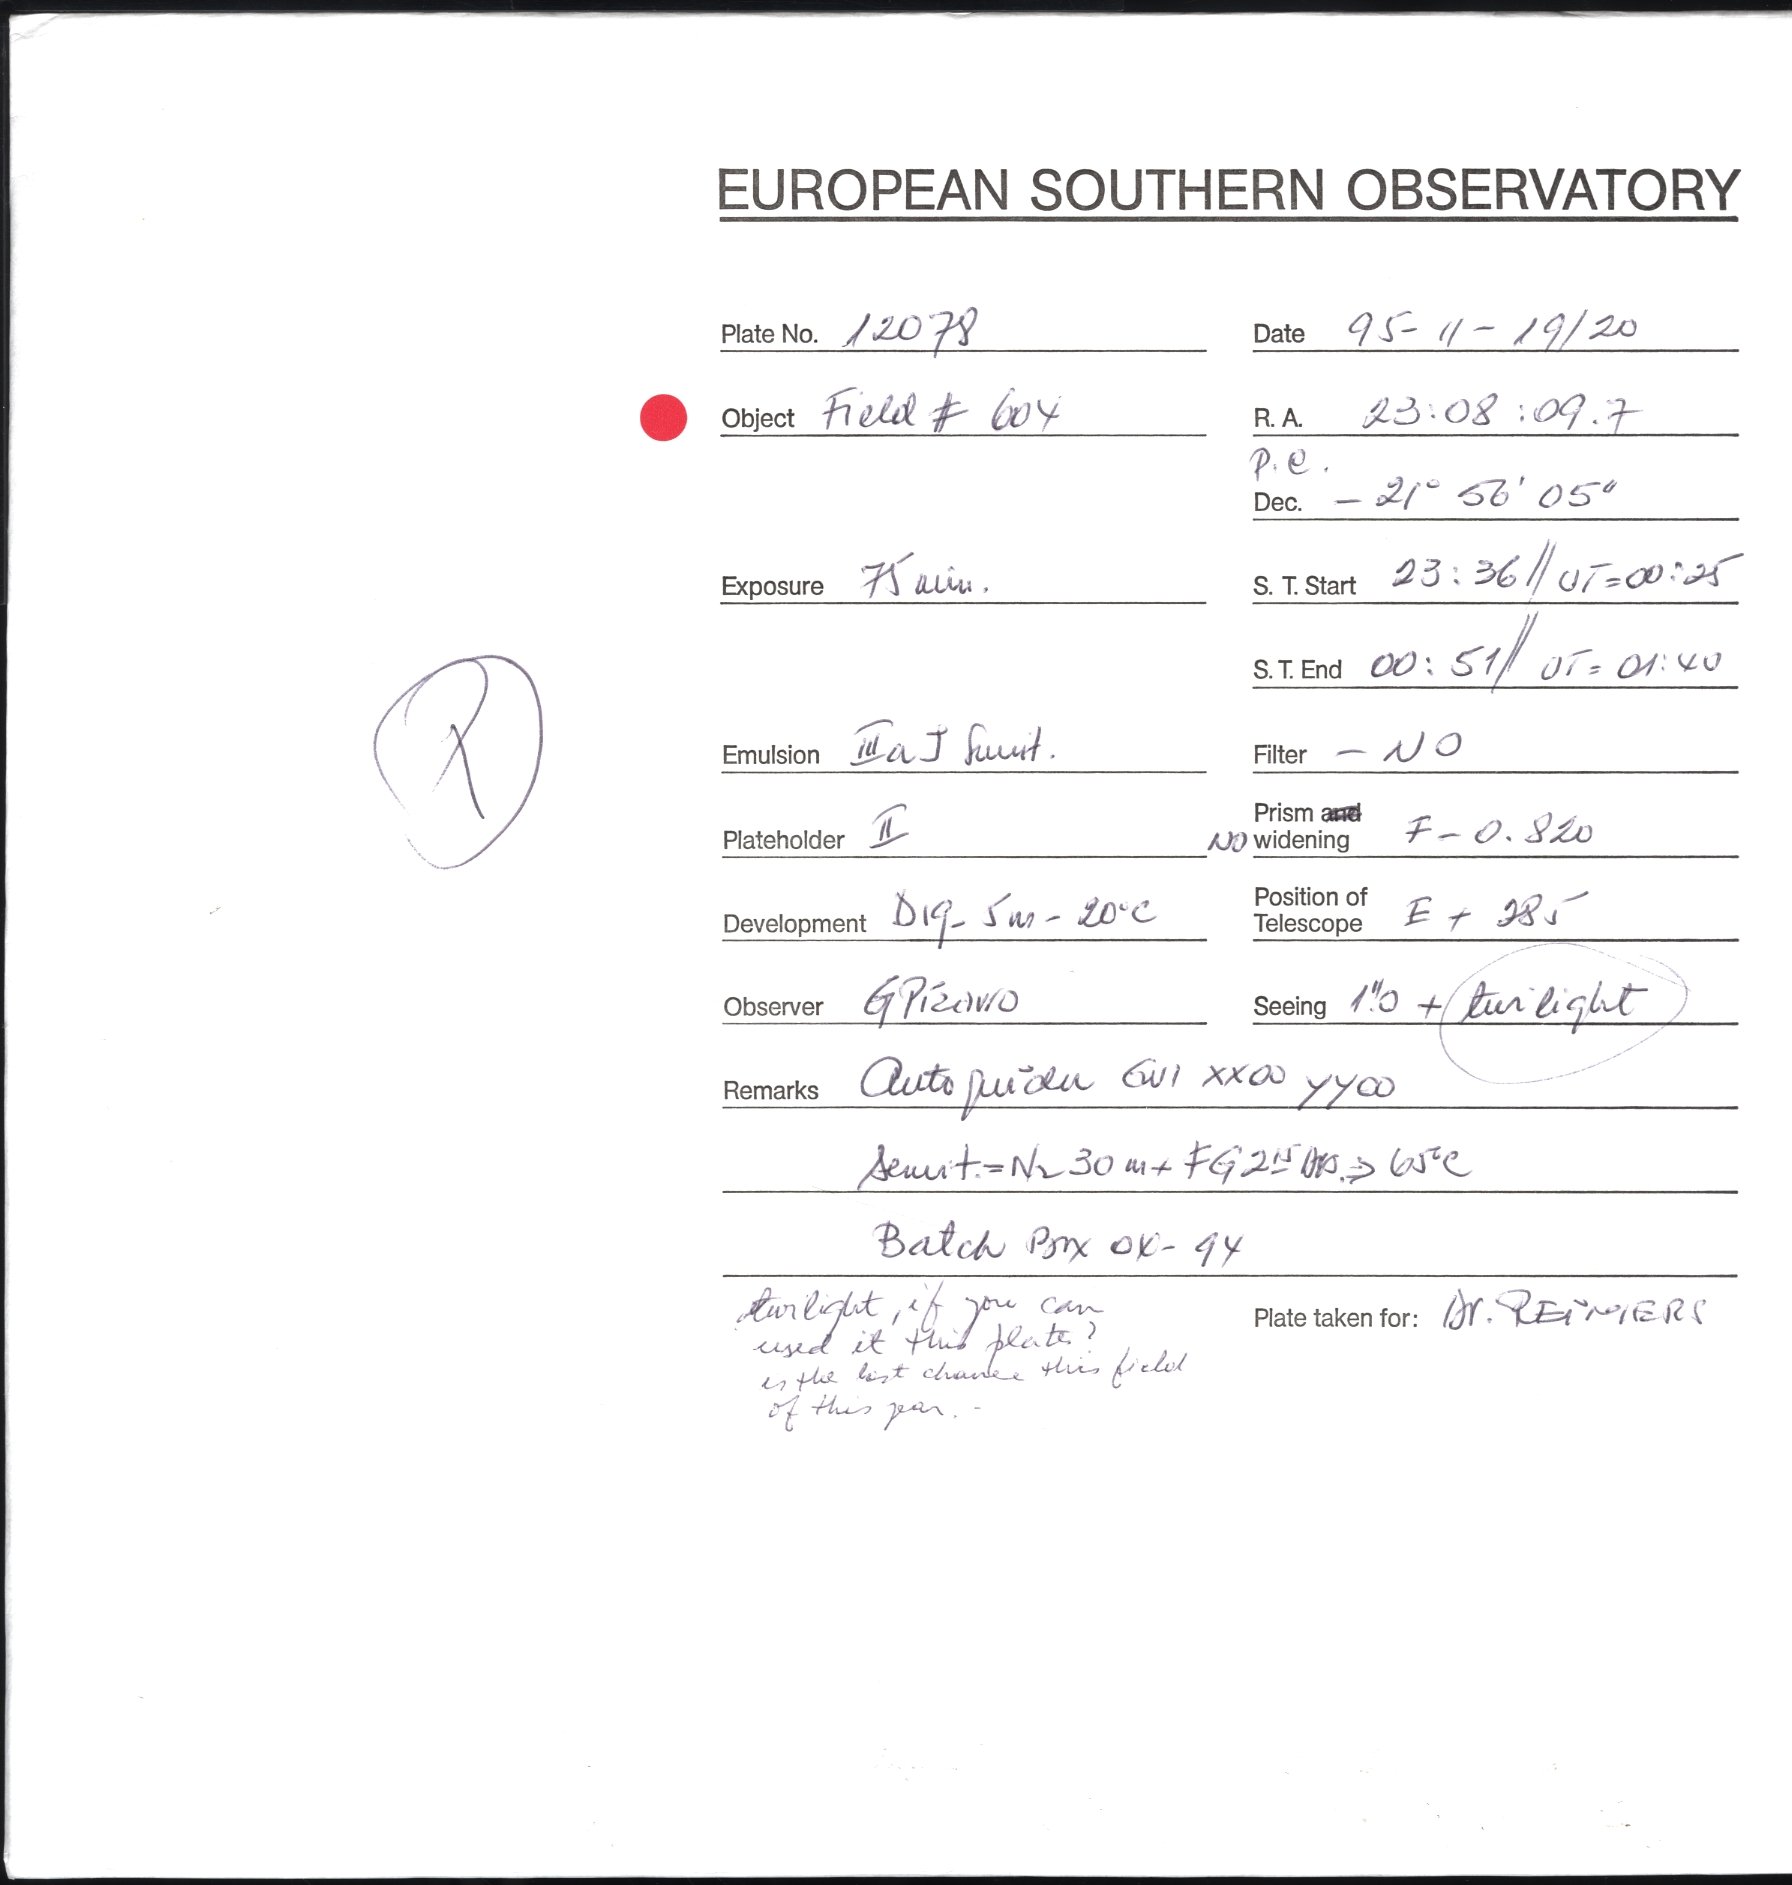 EUROPEAN SOUTHERN OBSERVATORY
Plate No. 12078 Date 95-11-19/20
Object Field # 604 R. A. 23:08:09.7
P.C.
Dec. - 21° 56' 05"
Exposure 75 min. S. T. Start 23:36 // UT=00:25
S. T. End 00:51 // UT= 01:40
Emulsion IIIaJ Sensit. Filter - NO
Plateholder II NO Prism and widening F - 0.820
Development D19 - 5m - 20°C Position of Telescope E + 285
Observer GPizarro Seeing 1"0 + twilight
Remarks Autoguider GW1 XX00 YY00
Sensit.=N2 30m + FG 2 65°C
Batch Box 04-94
twilight, if you can Plate taken for: Dr. REIMERS
used it this plate?
is the last chance this field
of this year.-